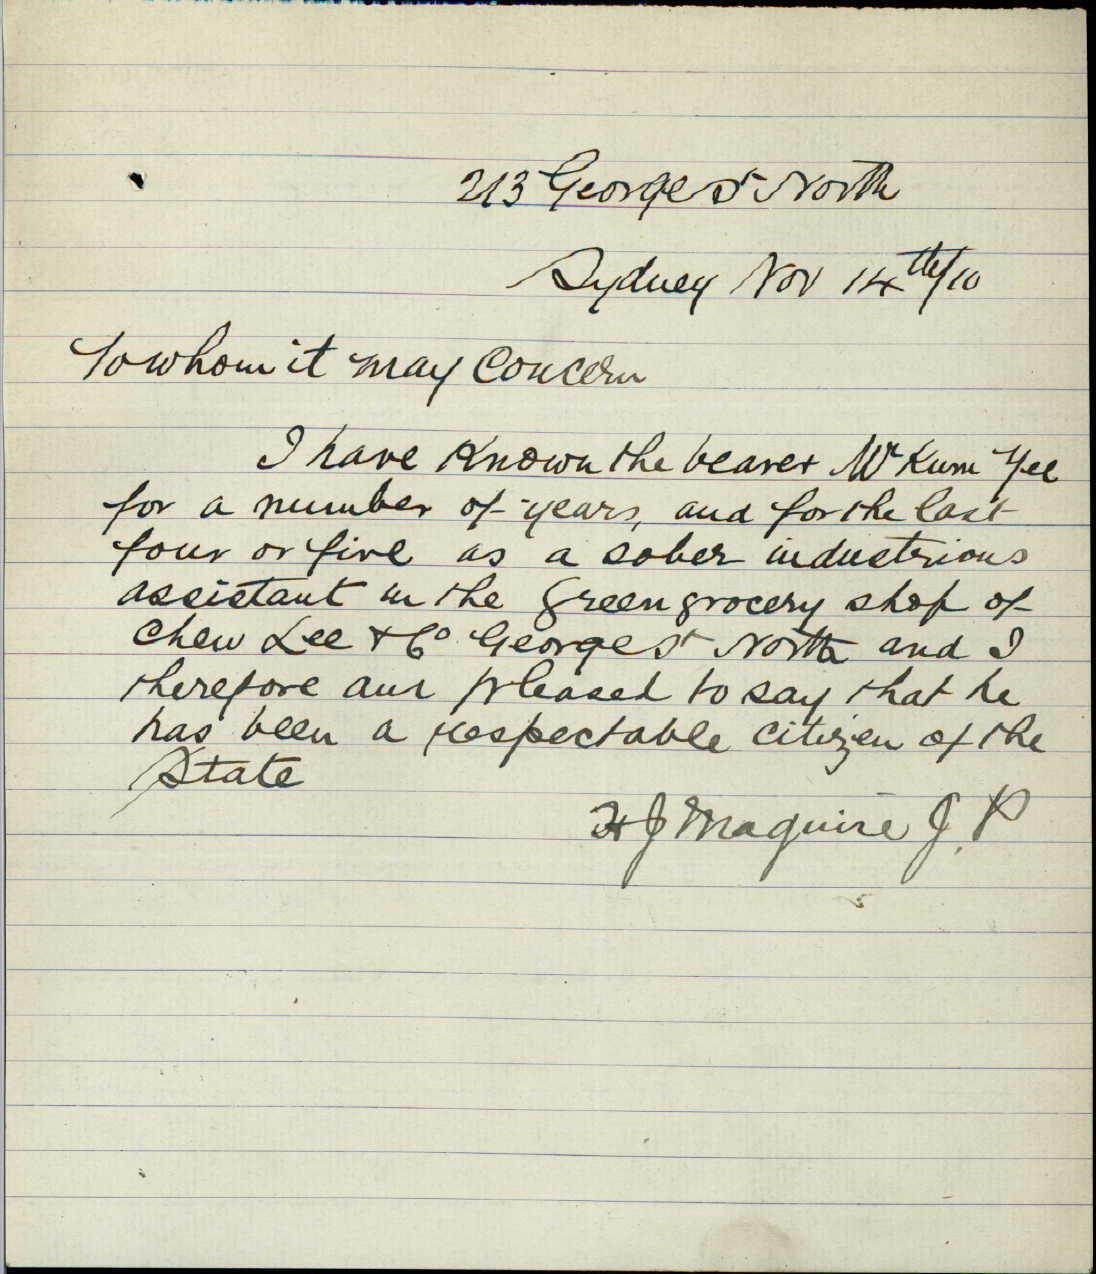 213 George St North
Sydney Nov 14th/10
To whom it may Concern
I have Known the bearer Mr Kum Yee
for a number of years, and for the last
four or five as a sober industrious
assistant in the Greengrocery shop of
Chew Lee & Co George St North and I
therefore am pleased to say that he
has been a respectable citizen of the
State
H J Maguire J. P